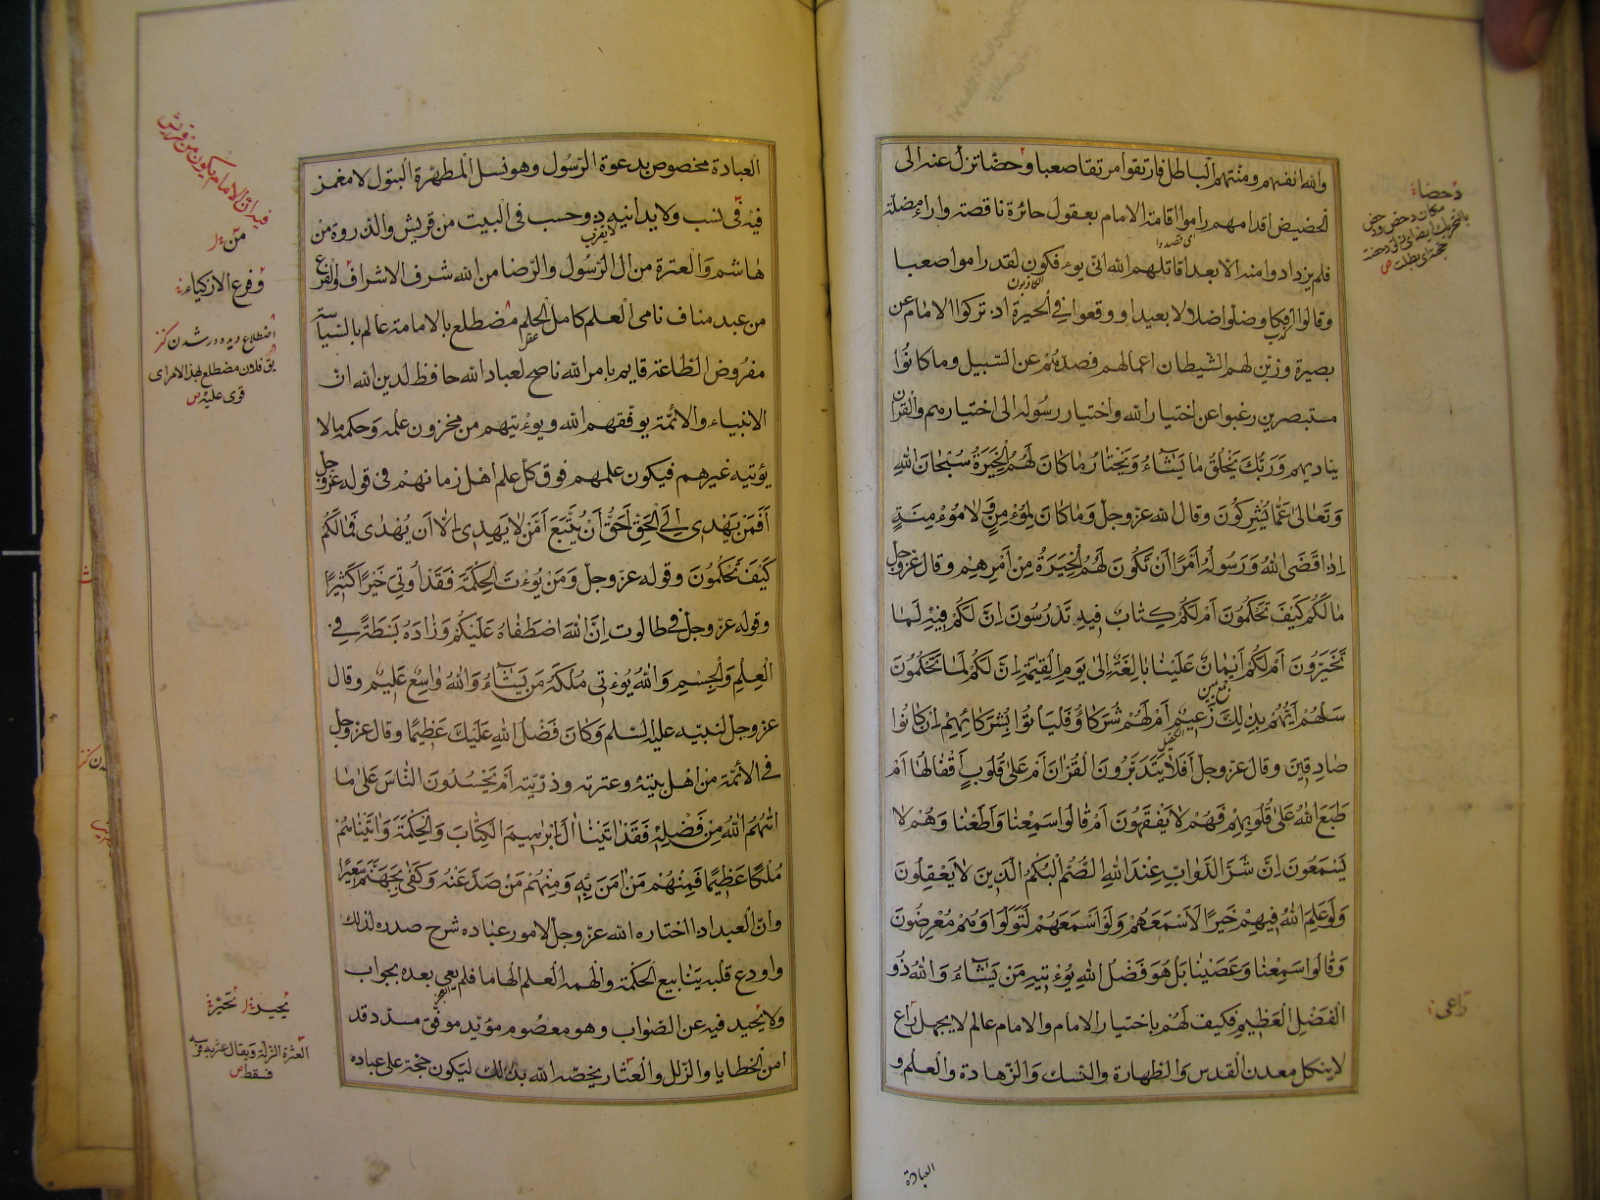 والله انفسهم ومنتهم الباطل فارتقوا مرتقا صعبا و حضا تزل عنه الى
الحضيض اقدامهم راموا اقامة الامام بعقول حائرة ناقصة واراء مضلة
فلم يزدادوا منه الا بعدا قاتلهم الله انى يؤفكون لقد راموا صعبا
وقالوا افكا وضلوا ضلالا بعيدا ووقعوا فى الحيرة اذ تركوا الامام عن
بصيرة وزين لهم الشيطان اعمالهم فصدهم عن السبيل وما كانوا
مستبصرين رغبوا عن اختيار الله واختيار رسوله الى اختيارهم والقران
يناديهم وَرَبُّكَ يَخْلُقُ مَا يَشَاءُ وَيَخْتَارُ مَا كَانَ لَهُمُ الْخِيَرَةُ سُبْحَانَ اللهِ
وَتَعَالى عَمَّا يُشْرِكُونَ وقال الله عز وجل وَمَا كَانَ لِمُؤْمِنٍ وَلا مُؤْمِنَةٍ
اِذَا قَضَى اللهُ وَرَسُولُهُ اَمْرًا اَنْ تَكُونَ لَهُمُ الْخِيَرَةُ مِنْ اَمْرِهِمْ وقال عز وجل
مَا لَكُمْ كَيْفَ تَحْكُمُونَ اَمْ لَكُمْ كِتَابٌ فِيهِ تَدْرُسُونَ اِنَّ لَكُمْ فِيهِ لَمَا
تَخَيَّرُونَ اَمْ لَكُمْ اَيْمَانٌ عَلَيْنَا بَالِغَةٌ اِلى يَوْمِ الْقِيمَةِ اِنَّ لَكُمْ لَمَا تَحْكُمُونَ
سَلْهُمْ اَيُّهُمْ بِذلِكَ زَعِيمٌ اَمْ لَهُمْ شُرَكَاؤُ فَلْيَاْتُوا بِشُرَكَائِهِمْ اِنْ كَانُوا
صَادِقِينَ وقال عز وجل اَفَلا يَتَدَبَّرُونَ الْقُرْانَ اَمْ عَلى قُلُوبٍ اَقْفَالُهَا اَمْ
طَبَعَ اللهُ عَلى قُلُوبِهِمْ فَهُمْ لا يَفْقَهُونَ اَمْ قَالُوا سَمِعْنَا وَاَطَعْنَا وَهُمْ لا
يَسْمَعُونَ اِنَّ شَرَّ الدَّوَابِّ عِنْدَ اللهِ الصُّمُّ الْبُكْمُ الَّذِينَ لا يَعْقِلُونَ
وَلَوْ عَلِمَ اللهُ فِيهِمْ خَيْرًا لَاَسْمَعَهُمْ وَلَوْ اَسْمَعَهُمْ لَتَوَلَّوْا وَهُمْ مُعْرِضُونَ
وَقَالُوا سَمِعْنَا وَعَصَيْنَا بَلْ هُوَ فَضْلُ اللهِ يُؤْتِيهِ مَنْ يَشَاءُ وَاللهُ ذُو
الْفَضْلِ الْعَظِيمِ فكيف لهم باختيار الامام والامام عالم لا يجهل راع
لا ينكل معدن القدس والطهارة والنسك والزهادة والعلم و
العبادة
دحضا
راعى
العبادة مخصوص بدعوة الرسول وهو نسل المطهرة البتول لا مغمز
فيه فى نسب ولا يدانيه ذو حسب فى البيت من قريش والذروة من
هاشم والعترة من ال الرسول والرضا من الله شرف الاشراف والفرع
من عبد مناف نامى العلم كامل الحلم مضطلع بالامامة عالم بالسياسة
مفروض الطاعة قايم بامر الله ناصح لعباد الله حافظ لدين الله ان
الانبياء والائمة يوفقهم الله ويؤتيهم من مخزون علمه وحكمه ما لا
يؤتيه غيرهم فيكون علمهم فوق كل علم اهل زمانهم فى قوله عز وجل
اَفَمَنْ يَهْدِى اِلَى الْحَقِّ اَحَقُّ اَنْ يُتَّبَعَ اَمَّنْ لا يَهِدِّى اِلا اَنْ يُهْدى فَمَا لَكُمْ
كَيْفَ تَحْكُمُونَ وقوله عز وجل وَمَنْ يُؤْتَ الْحِكْمَةَ فَقَدْ اُوتِيَ خَيْرًا كَثِيرًا
وقوله عز وجل فى طالوت اِنَّ اللهَ اصْطَفَاهُ عَلَيْكُمْ وَزَادَهُ بَسْطَةً فِى
الْعِلْمِ وَالْجِسْمِ وَاللهُ يُؤْتِى مُلْكَهُ مَنْ يَشَاءُ وَاللهُ وَاسِعٌ عَلِيمٌ وقال
عز وجل لنبيه عليه السلم وَكَانَ فَضْلُ اللهِ عَلَيْكَ عَظِيمًا وقال عز وجل
فى الائمة من اهل بيته وعترته وذريته اَمْ يَحْسُدُونَ النَّاسَ عَلى مَا
اتيهُمُ اللهُ مِنْ فَضْلِهِ فَقَدْ اتَيْنَا الَ اِبْرهِيمَ الْكِتَابَ وَالْحِكْمَةَ وَاتَيْنَاهُمْ
مُلْكًا عَظِيمًا فَمِنْهُمْ مَنْ امَنَ بِهِ وَمِنْهُمْ مَنْ صَدَّ عَنْهُ وَكَفى بِجَهَنَّمَ سَعِيرًا
وان العبد اذا اختاره الله عز وجل لامور عباده شرح صدره لذلك
واودع قلبه ينابيع الحكمة والهمه العلم الهاما فلم يعى بعده بجواب
ولا يحيد فيه عن الصواب وهو معصوم مؤيد موفق مسدد قد
امن الخطايا والزلل والعثار يخصه الله بذلك ليكون حجة على عباده
فيه ان الامام يكون من قريش
وفرع الازكياء
اضطلاع
فلان مضطلع لهذا الامر اى
قوى عليه ص
العثرة الزلة ويقال عثر به فرسه
فسقط ص